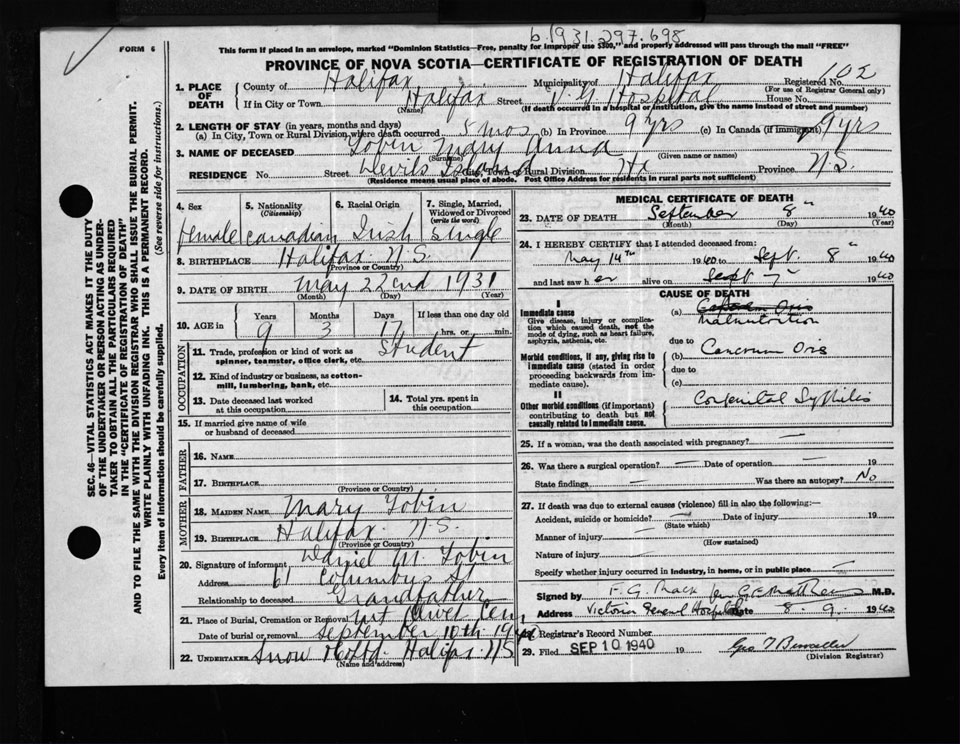 b.1931.297.698
FORM 6
This form if placed in an envelope, marked "Dominion Statistics—Free, penalty for improper use $300," and properly addressed will pass through the mail "FREE"
PROVINCE OF NOVA SCOTIA—CERTIFICATE OF REGISTRATION OF DEATH
SEC. 46—VITAL STATISTICS ACT MAKES IT THE DUTY
OF THE UNDERTAKER OR PERSON ACTING AS UNDER-
TAKER TO OBTAIN ALL THE PARTICULARS REQUIRED
IN THE "CERTIFICATE OF REGISTRATION OF DEATH"
AND TO FILE THE SAME WITH THE DIVISION REGISTRAR WHO SHALL ISSUE THE BURIAL PERMIT.
WRITE PLAINLY WITH UNFADING INK. THIS IS A PERMANENT RECORD.
Every item of information should be carefully supplied. (See reverse side for instructions.)
1. PLACE OF DEATH
County of Halifax Municipality of Halifax Registered No. 102
(For use of Registrar General only)
If in City or Town Halifax Street V.G. Hospital House No.
(Name) (If death occurred in a hospital or institution, give the name instead of street and number)
2. LENGTH OF STAY (in years, months and days)
(a) In City, Town or Rural Division where death occurred 5 mos (b) In Province 9 yrs (c) In Canada (if immigrant) 9 yrs
3. NAME OF DECEASED Tobin Mary Anna
(Surname) (Given name or names)
RESIDENCE No. Street Devils Island City, Town or Rural Division Hx Province N.S.
(Residence means usual place of abode. Post Office Address for residents in rural parts not sufficient)
4. Sex 5. Nationality (Citizenship) 6. Racial Origin 7. Single, Married, Widowed or Divorced (write the word)
female Canadian Irish Single
8. BIRTHPLACE Halifax N.S.
(Province or Country)
9. DATE OF BIRTH May 22nd 1931
(Month) (Day) (Year)
10. AGE in Years Months Days If less than one day old
9 3 17 hrs. or min.
OCCUPATION
11. Trade, profession or kind of work as spinner, teamster, office clerk, etc. Student
12. Kind of industry or business, as cotton-mill, lumbering, bank, etc.
13. Date deceased last worked at this occupation
14. Total yrs. spent in this occupation
15. If married give name of wife or husband of deceased
FATHER
16. NAME
17. BIRTHPLACE
(Province or Country)
MOTHER
18. MAIDEN NAME Mary Tobin
19. BIRTHPLACE Halifax N.S.
(Province or Country)
20. Signature of informant Daniel M. Tobin
Address 61 Columbus St
Relationship to deceased Grandfather
21. Place of Burial, Cremation or Removal Mt Olivet Cem
Date of burial or removal September 10th 1940
22. UNDERTAKER Snow Halifax N.S.
(Name and address)
MEDICAL CERTIFICATE OF DEATH
23. DATE OF DEATH September 8" 1940
(Month) (Day) (Year)
24. I HEREBY CERTIFY that I attended deceased from:
May 14th 1940 to Sept. 8" 1940
and last saw her alive on Sept 7 1940
CAUSE OF DEATH
I
Immediate cause
Give disease, injury or complication which caused death, not the mode of dying, such as heart failure, asphyxia, asthenia, etc.
(a) Malnutrition
due to
Morbid conditions, if any, giving rise to immediate cause (stated in order proceeding backwards from immediate cause).
(b) Cancrum Oris
due to
(c)
II
Other morbid conditions (if important) contributing to death but not causally related to immediate cause.
Congenital Syphilis
25. If a woman, was the death associated with pregnancy? —
26. Was there a surgical operation? — Date of operation — 19
State findings — Was there an autopsy? No
27. If death was due to external causes (violence) fill in also the following:—
Accident, suicide or homicide? — Date of injury 19
(State which)
Manner of injury —
(How sustained)
Nature of injury —
Specify whether injury occurred in industry, in home, or in public place —
Signed by F.G. Mack for M.D.
Address Victoria General Hospital Date 8.9. 1940
28. Registrar's Record Number
29. Filed SEP 10 1940 19
(Division Registrar)